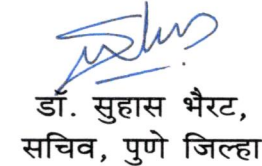 डॉ. सुहास भैरट,
सचिव, पुणे जिल्हा